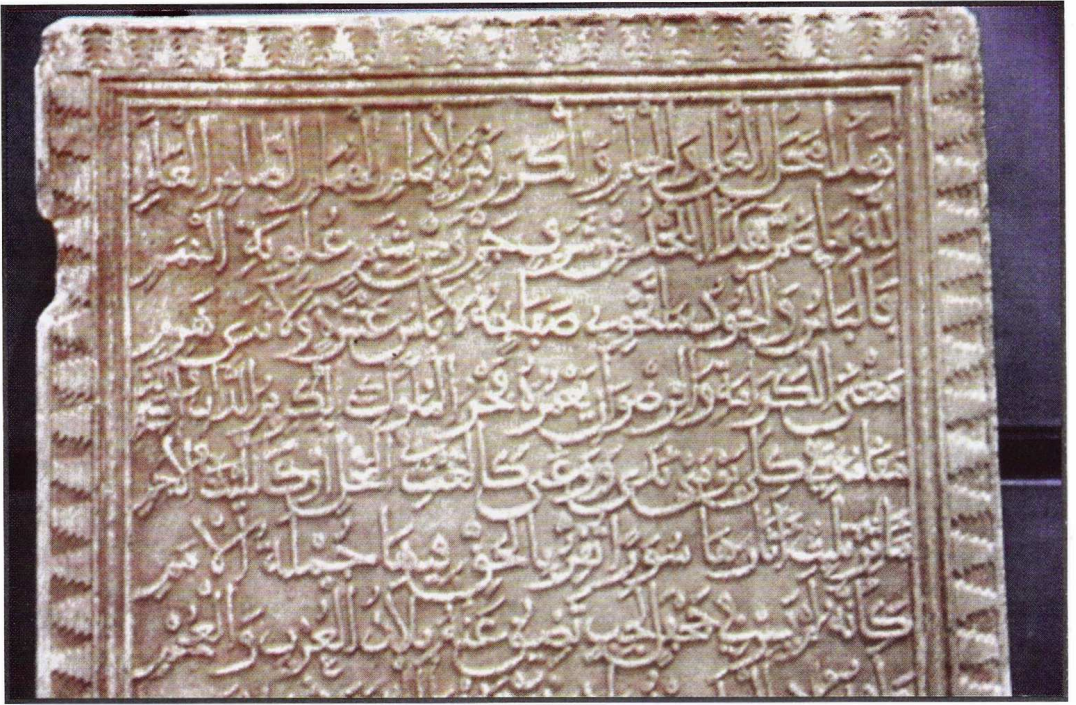 هذا محل العلى والحلم والكرم قبر الإمام الهمام الطاهر العلم
لله ما ضم هذا اللحد من شرف جم ومن شيم علوية الهمم
فالباس والجود ما تحوي صفائحه لا بأس عنترة ولا ندى هرم
مغنى الكرامة والرضوان يعهده فخر الملوك الكريم الذات والشيم
مقامه في كلي يومي ندى ووغى كالغيث في المحل أو كالليث في الأجم
مآثر تليت آثارها سورا تقر بالحق فيها جملة الأمم
كأنه لم يسر في جحفل لجب تضيق عنه بلاد العرب والعجم